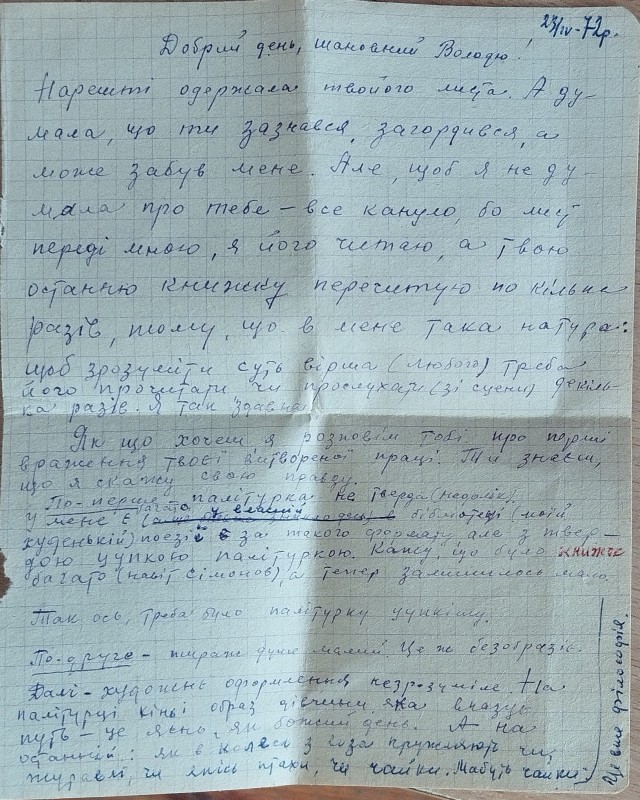 23/IV-72р.
Добрий день, шановний Володю!
Нарешті одержала твойого листа. А ду-
мала, що ти зазнався, загордився, а
може забув мене. Але, щоб я не ду-
мала про тебе – все кануло, бо лист
переді мною, я його читаю, а твою
останню книжку перечитую по кілька
разів, тому, що в мене така натура:
щоб зрозуміти суть вірша (любого) треба
його прочитати чи прослухати (зі сцени) декіль-
ка разів. Я так здавна.
Якщо хочеш я розповім тобі про перші
враження твоєї витвореної праці. Ти знаєш,
що я скажу свою правду.
По-перше – палітурка не тверда (недолік).
У мене є багато у власній бібліотеці (моїй
худенькій) поезії є за такого формату але з твер-
дою цупкою палітуркою. Кажу, що було книжок
багато (навіть Сімонов), а тепер залишилось мало.
Так ось, треба було палітурку цупкішу.
По-друге – тираж дуже малий. Це ж безобразіє.
Далі – художнє оформлення незрозуміле. На
палітурці кінь і образ дівчини яка вказує
путь – це ясно, як божий день. А на
останній: як в колесі з воза кружляють чи,
журавлі, чи якісь птахи, чи чайки. Мабуть чайки
Це вже філософія.